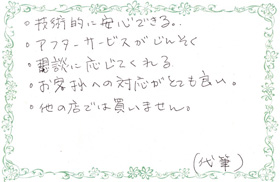 ○技術的に安心できる。
○アフターサービスがじんそく
○懇談に応じてくれる
○お客様への対応がとても良い。
○他の店では買いません。
(代筆)